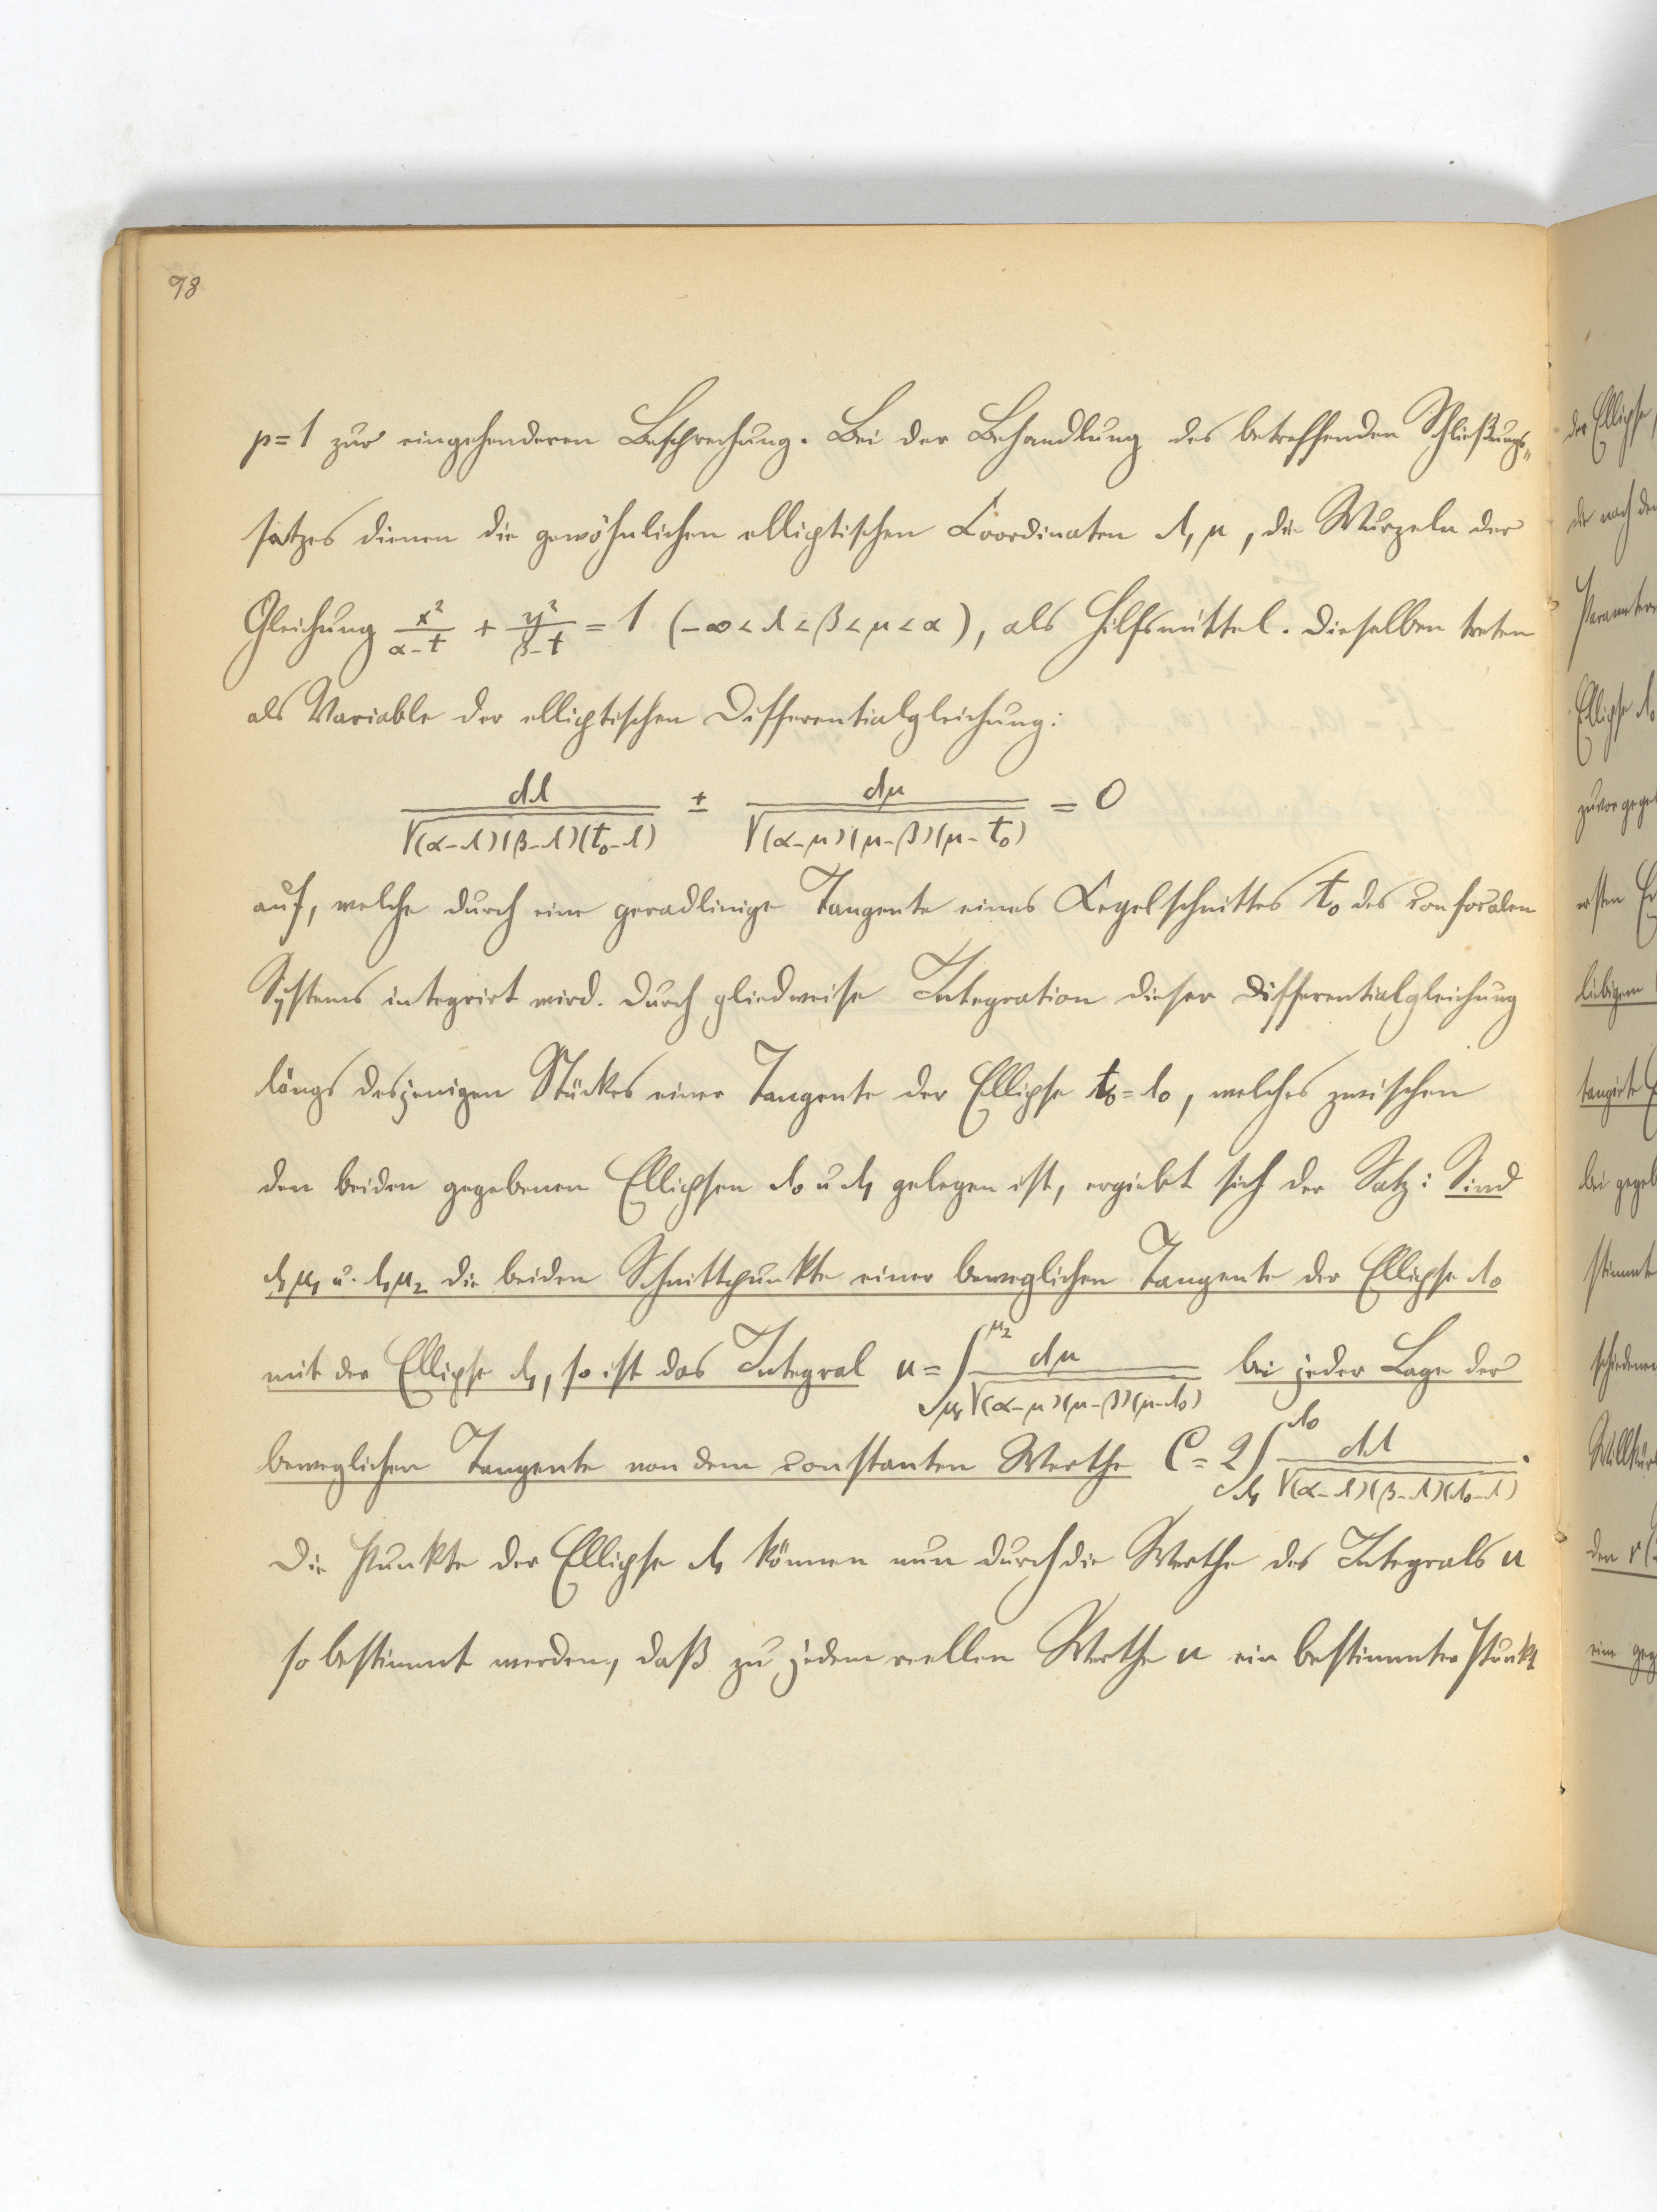 98
p=1 zur eingehenderen Besprechung. Bei der Behandlung des betreffenden Schließungs=
satzes dienen die gewöhnlichen elliptischen Coordinaten λ, μ, die Wurzeln der
Gleichung x²/(α-t) + y²/(β-t) = 1 (-∞ < λ < β < μ < α), als Hilfsmittel. Dieselben treten
als Variable der elliptischen Differentialgleichung:
dλ/√(α-λ)(β-λ)(t₀-λ) ± dμ/√(α-μ)(μ-β)(μ-t₀) = 0
auf, welche durch eine geradlinige Tangente eines Kegelschnittes t₀ des confocalen
Systems integrirt wird. Durch gliedweise Integration dieser Differentialgleichung
längs desjenigen Stückes einer Tangente der Ellipse t₀=λ₀, welches zwischen
den beiden gegebenen Ellipsen λ₀ u λ₁ gelegen ist, ergiebt sich der Satz: Sind
λ₁μ₁ u. λ₁μ₂ die beiden Schnittpunkte einer beweglichen Tangente der Ellipse λ₀
mit der Ellipse λ₁, so ist das Integral u = ∫_{μ₁}^{μ₂} dμ/√(α-μ)(μ-β)(μ-λ₀) bei jeder Lage der
beweglichen Tangente von dem constanten Werthe C = 2∫_{λ₁}^{λ₀} dλ/√(α-λ)(β-λ)(λ₀-λ).
Die Punkte der Ellipse λ₁ können nun durch die Werthe des Integrals u
so bestimmt werden, daß zu jedem reellen Werthe u ein bestimmter Punkt
der Ellipse,
die nach den
Ellipse λ₀
ersten
liebigen
tangirte
bei gegeb
stimmte
schiedenen
Willkür
den
eine geg